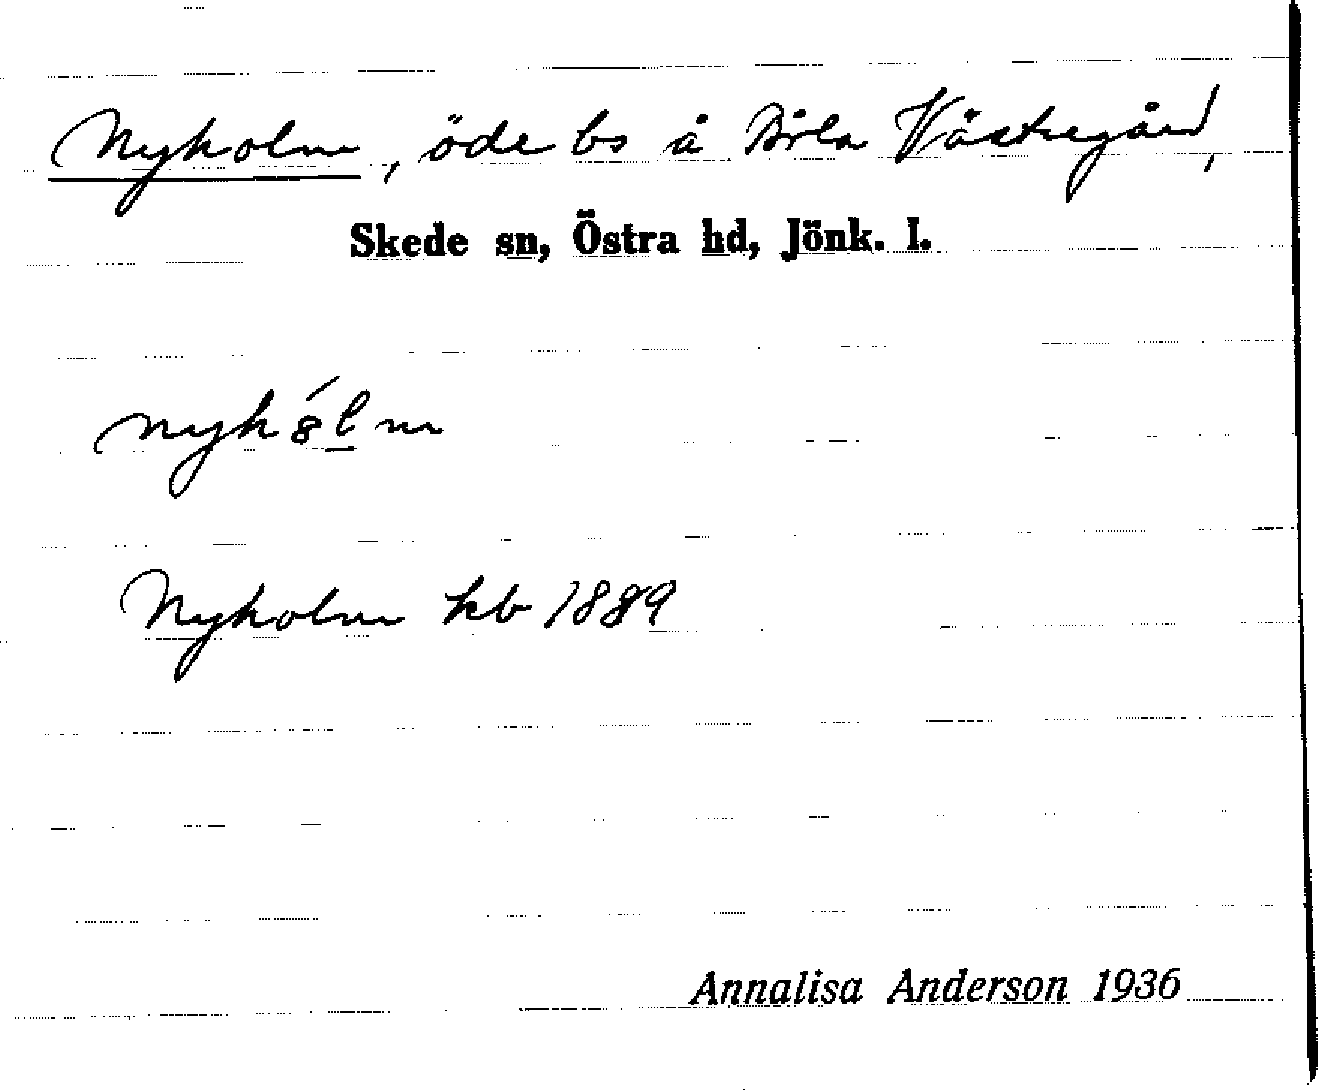 Nyholm, öde bs å Årla Västregård,
Skede sn, Östra hd, Jönk. l.
nyhólm
Nyholm kb 1889
Annalisa Anderson 1936